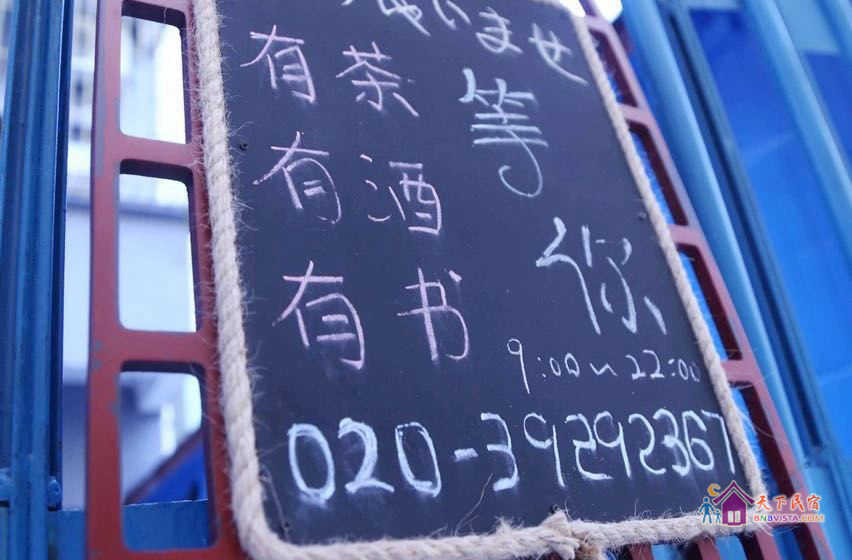 いませ
有茶
有酒
有书
等
你
9:00~22:00
020-39292367
天下民宿
BNBVISTA.COM